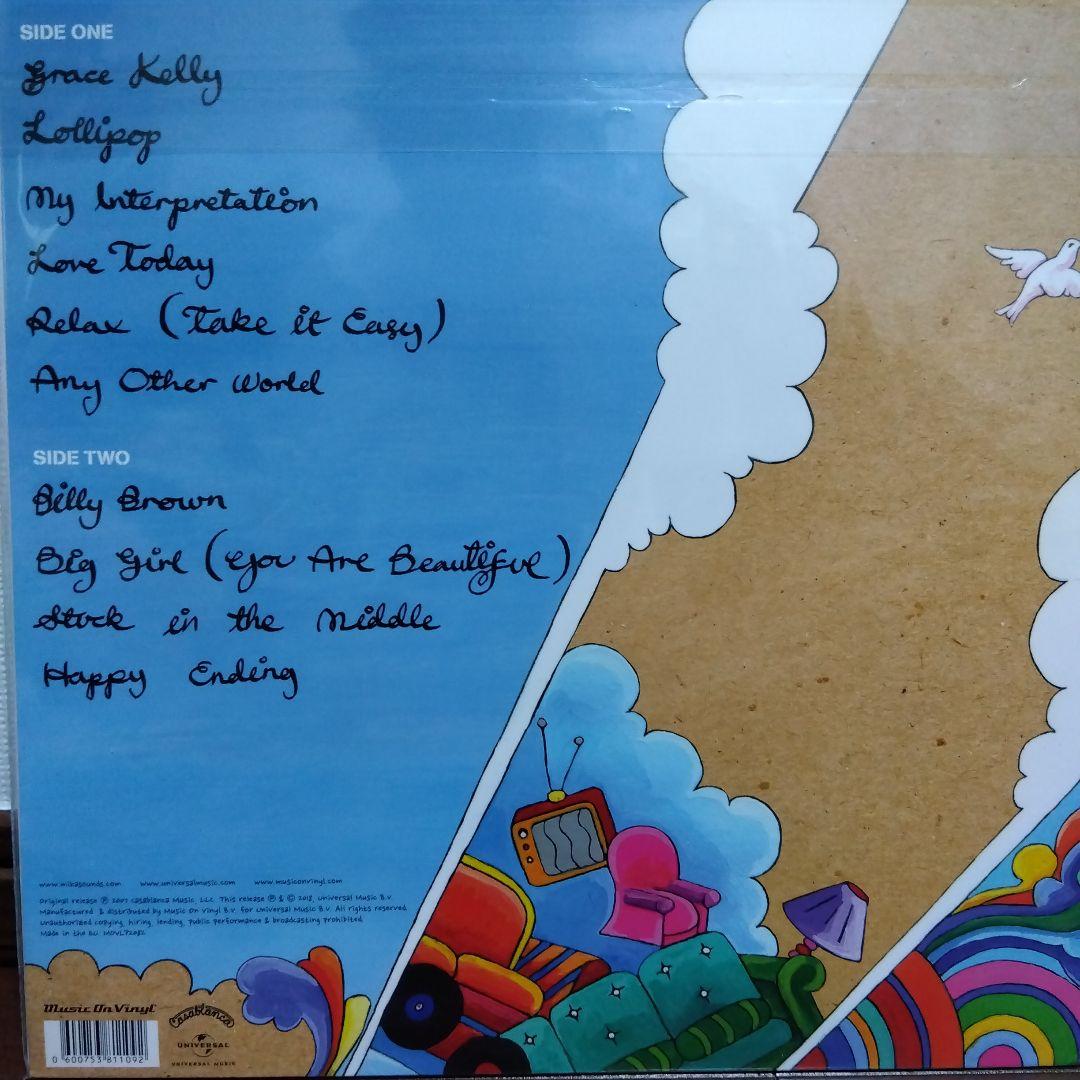 SIDE ONE
Grace Kelly
Lollipop
My Interpretation
Love Today
Relax (Take it Easy)
Any Other World
SIDE TWO
Billy Brown
Big Girl (You Are Beautiful)
Stuck in the Middle
Happy Ending
www.mikasounds.com www.universalmusic.com www.musiconvinyl.com
Original release ℗ 2007 Casablanca Music, LLC. This release ℗ & © 2018, Universal Music B.V.
Manufactured & distributed by Music On Vinyl B.V. for Universal Music B.V. All rights reserved.
Unauthorized copying, hiring, lending, public performance & broadcasting prohibited.
Made in the EU.
Music On Vinyl
Casablanca
UNIVERSAL
UNIVERSAL MUSIC
0 600753 811092